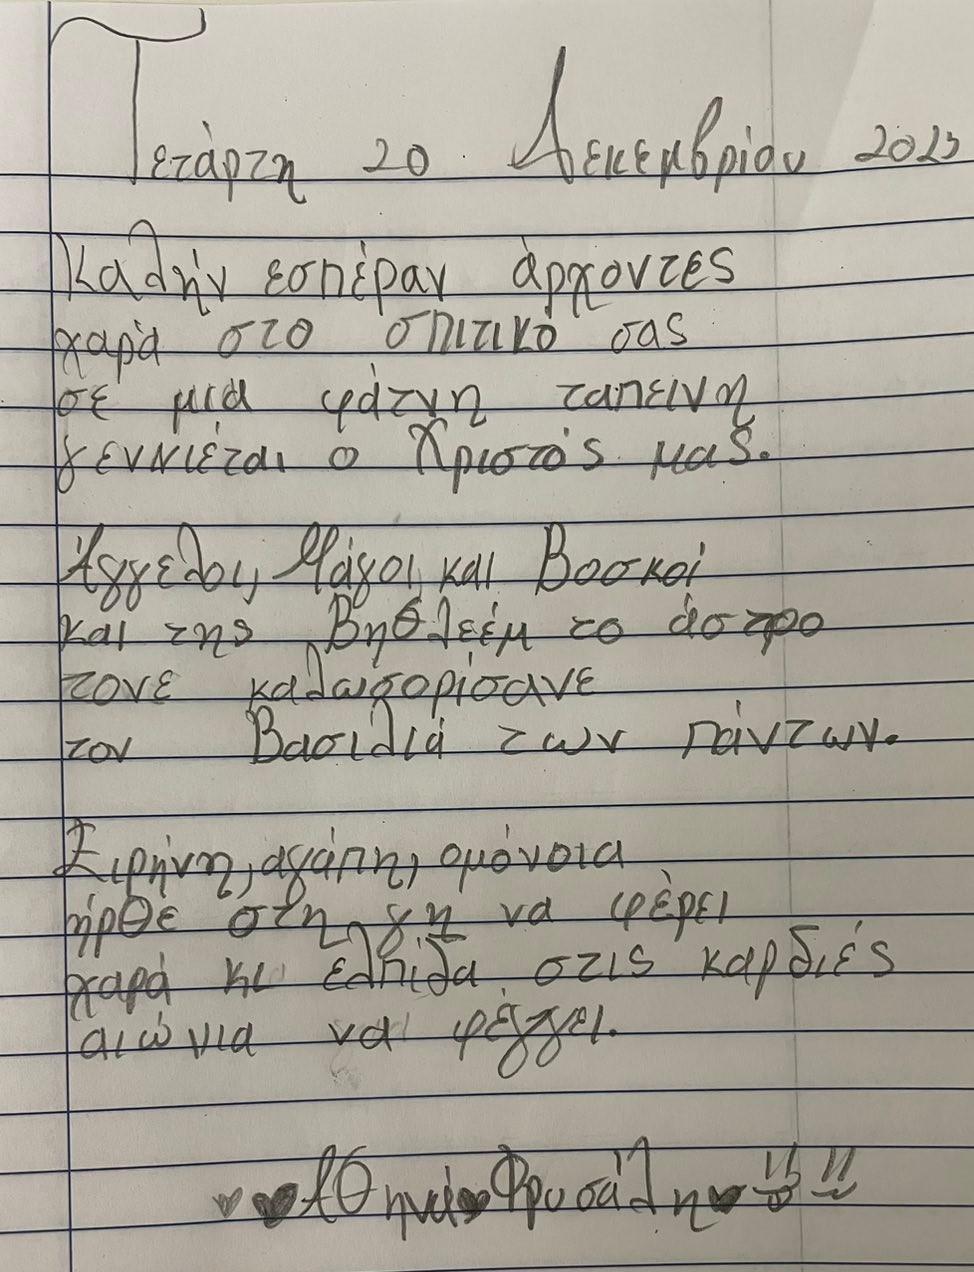 Τετάρτη 20 Δεκεμβρίου 2023
Καλήν εσπέραν άρχοντες
χαρά στο σπιτικό σας
σε μια φάτνη ταπεινη
γεννιέται ο Χριστός μας.
Άγγελοι, Μάγοι, και Βοσκοί
και της Βηθλεέμ το άστρο
τονε καλωσορίσανε
τον Βασιλιά των πάντων.
Ειρήνη, αγάπη, ομόνοια
ήρθε στη γη να φέρει
χαρά κι ελπίδα στις καρδιές
αιώνια να φέγγει.
Αθηνά Φρυσάλη